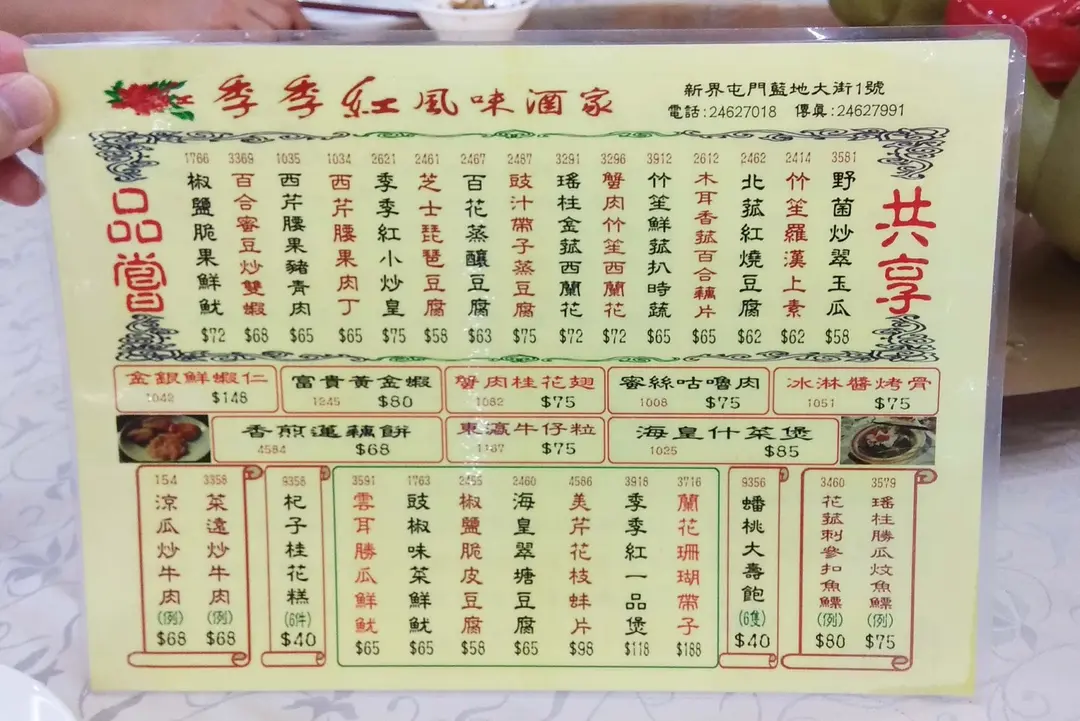 季季紅風味酒家
新界屯門藍地大街1號
電話:24627018 傳真:24627991
共享
3581 野菌炒翠玉瓜 $58
2414 竹笙羅漢上素 $62
2462 北菰紅燒豆腐 $62
2612 木耳香菰百合藕片 $65
3912 竹笙鮮菰扒時蔬 $65
3296 蟹肉竹笙西蘭花 $72
3291 瑤柱金菰西蘭花 $72
2487 豉汁帶子蒸豆腐 $75
2467 百花蒸釀豆腐 $63
2461 芝士琵琶豆腐 $58
2621 季季紅小炒皇 $75
1034 西芹腰果肉丁 $65
1035 西芹腰果豬青肉 $65
3369 百合蜜豆炒雙蝦 $68
1766 椒鹽脆果鮮魷 $72
品嘗
金銀鮮蝦仁
1042 $148
富貴黃金蝦
1245 $80
蟹肉桂花翅
1082 $75
蜜絲咕嚕肉
1008 $75
冰淋醬烤骨
1051 $75
香煎蓮藕餅
4584 $68
東瀛牛仔粒
1187 $75
海皇什菜煲
1025 $85
3579 瑤柱勝瓜炆魚鰾 (例) $75
3460 花菰刺參扣魚鰾 (例) $80
9356 蟠桃大壽飽 (6隻) $40
3716 蘭花珊瑚帶子 $188
3918 季季紅一品煲 $118
4586 美芹花枝蚌片 $98
2460 海皇翠塘豆腐 $65
2455 椒鹽脆皮豆腐 $58
1763 豉椒味菜鮮魷 $65
3591 雲耳勝瓜鮮魷 $65
9358 杞子桂花糕 (6件) $40
3358 菜遠炒牛肉 (例) $68
154 涼瓜炒牛肉 (例) $68